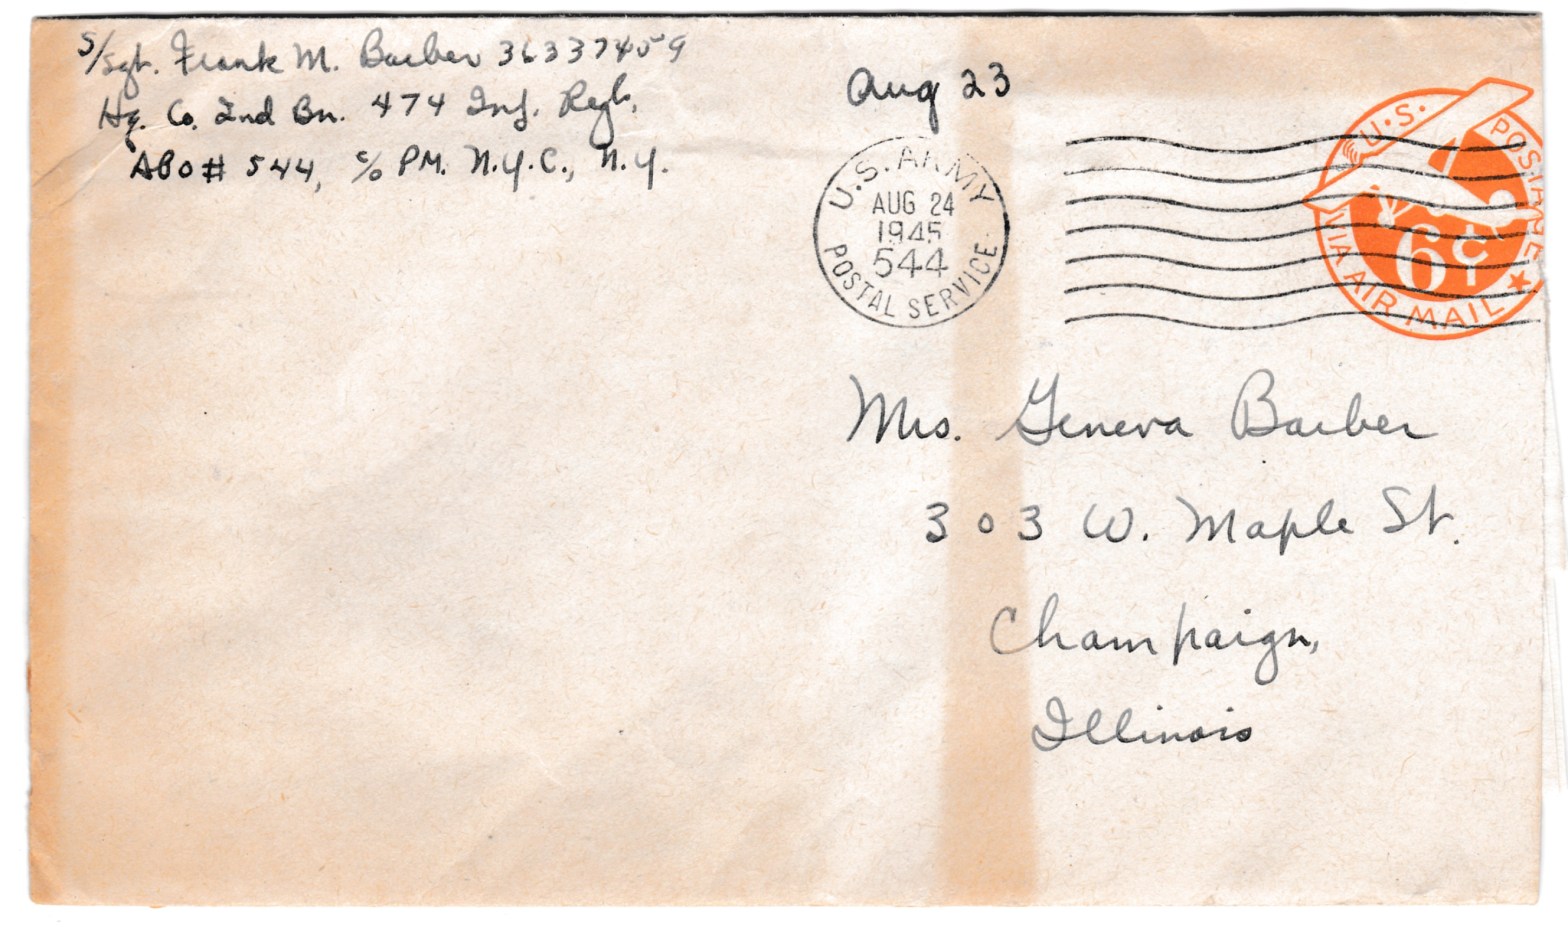 S/Sgt. Frank M. Barber 36337459
Hq. Co. 2nd Bn. 474 Inf. Regt.
APO # 544, c/o PM. N.Y.C., N.Y.
Aug 23
U.S. ARMY
AUG 24
1945
544
POSTAL SERVICE
U.S. POSTAGE
6¢
VIA AIR MAIL
Mrs. Geneva Barber
303 W. Maple St.
Champaign,
Illinois